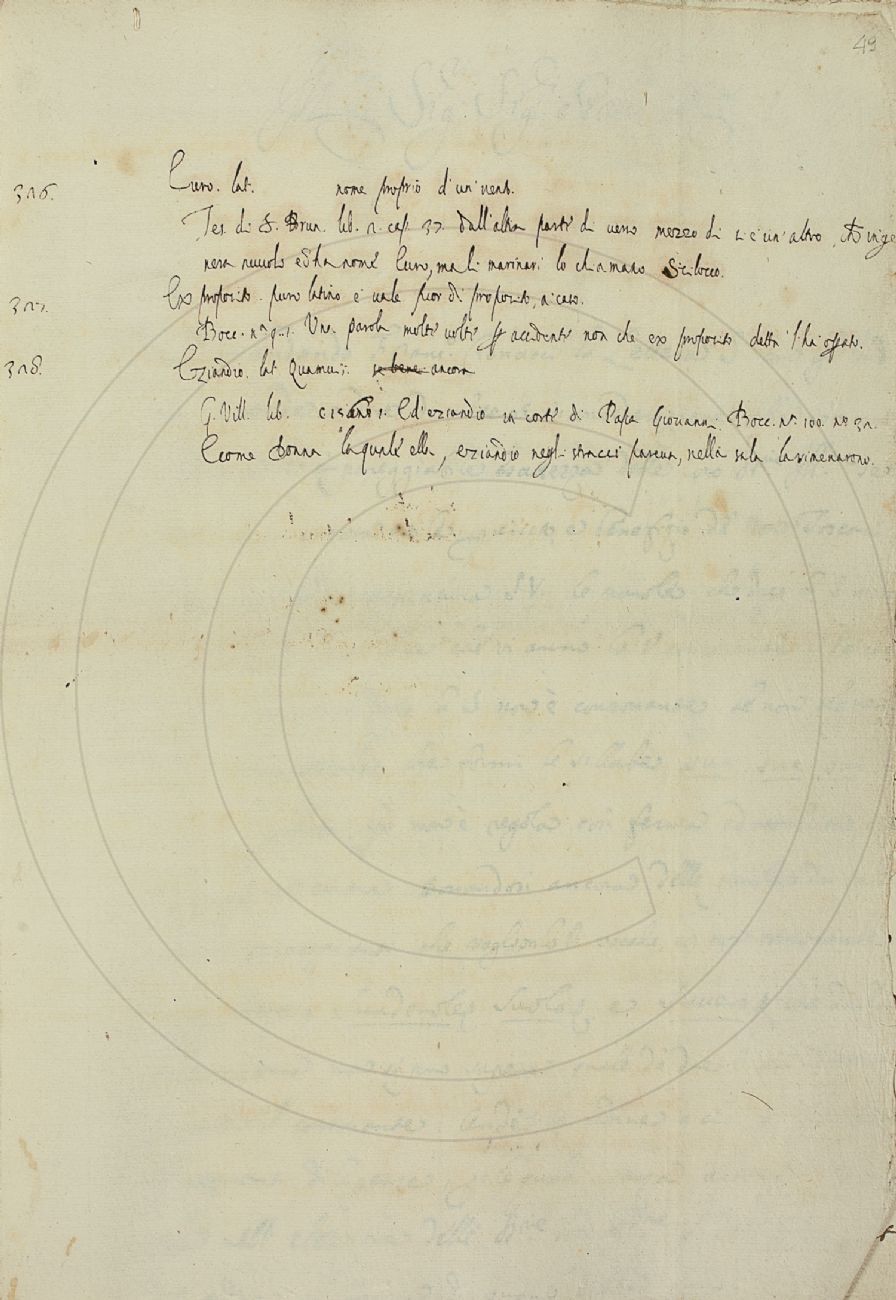 49
316. Euro. lat. nome proprio d'un vento.
Tes. di S. Brun. lib. 2. cap. 37. Dall'altra parte di verso mezzo di si è un'altro, che inge
nera nuvolo ed ha nome Euro, ma li marinari lo chiamano Scilocco.
317. Ex proposito. puro latino e vale fuor di proposito, a caso.
Bocc. n. 9. 1. Una parola molte volte per accidente non che ex proposito detta l'ha operato.
318. Eziandio. lat. Quamvis. se bene ancora
G. Vill. lib. Ed eziandio in corte di Papa Giovanni. Bocc. n. 100. n. 32.
E come donna la quale ella, eziandio negli stracci pareva, nella sala la rimenarono.